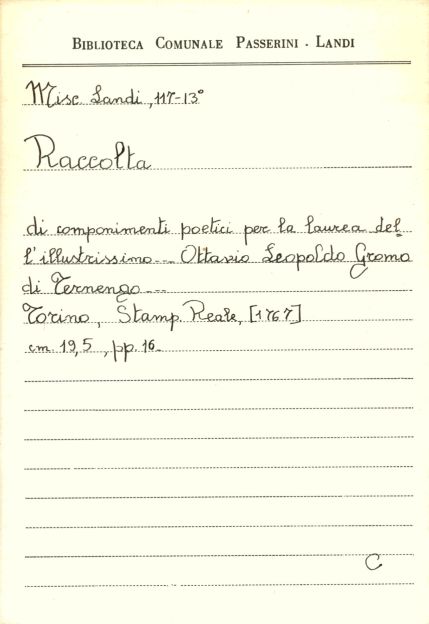 BIBLIOTECA COMUNALE PASSERINI - LANDI
Misc. Landi, 117-13°
Raccolta
di componimenti poetici per la laurea del
l'illustrissimo --- Ottavio Leopoldo Gromo
di Ternengo ---
Torino, Stamp. Reale, [1767]
cm. 19,5, pp. 16.
C